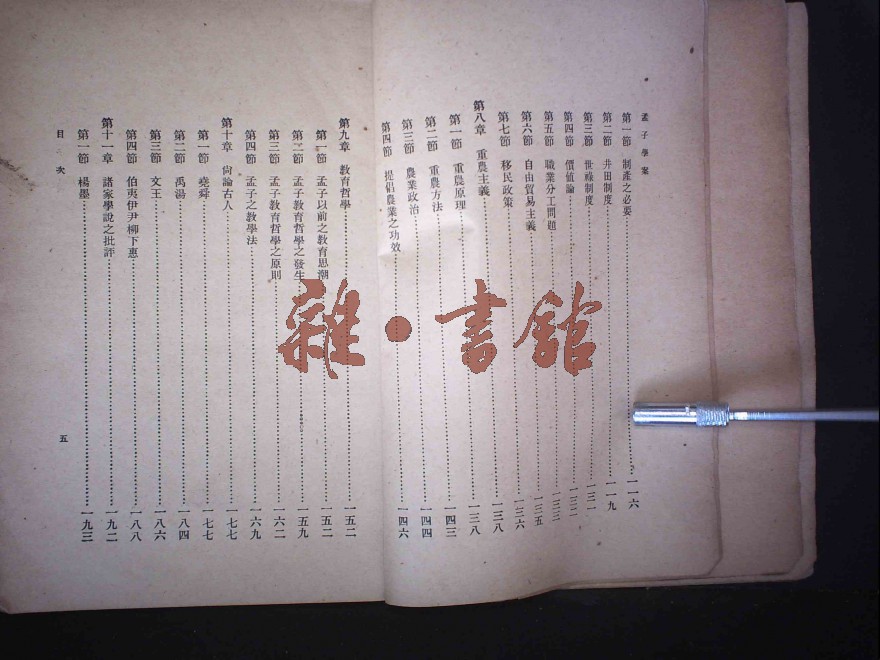 孟子學案
第一節 制產之必要 一一六
第二節 井田制度 一一九
第三節 世祿制度 一三一
第四節 價值論 一三二
第五節 職業分工問題 一三五
第六節 自由貿易主義 一三六
第七節 移民政策 一三八
第八章 重農主義 一三八
第一節 重農原理 一四三
第二節 重農方法 一四四
第三節 農業政治
第四節 提倡農業之功效 一四六
第九章 教育哲學 一五二
第一節 孟子以前之教育思潮 一五二
第二節 孟子教育哲學之發生 一五九
第三節 孟子教育哲學之原則 一六二
第四節 孟子之教學法 一六九
第十章 尙論古人 一七七
第一節 堯舜 一七七
第二節 禹湯 一八四
第三節 文王 一八六
第四節 伯夷伊尹柳下惠 一八八
第十一章 諸家學說之批評 一九二
第一節 楊墨 一九三
目次
五
雜·書館